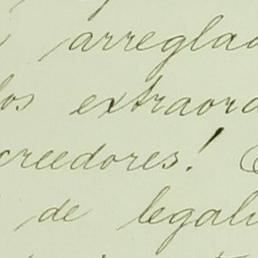 arreglad
los extraord
creedores!
de legali